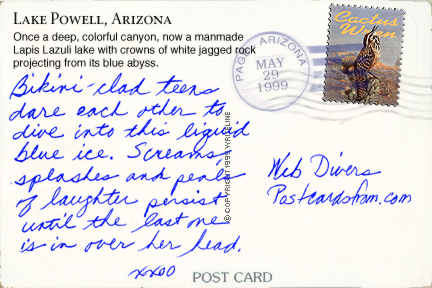 LAKE POWELL, ARIZONA
Once a deep, colorful canyon, now a manmade
Lapis Lazuli lake with crowns of white jagged rock
projecting from its blue abyss.
Bikini-clad teens
dare each other to
dive into this liquid
blue ice. Screams,
splashes and peals
of laughter persist
until the last one
is in over her head.
xxoo
PAGE, ARIZONA
MAY
29
1999
Cactus
Wren
Web Divers
Postcardsfrom.com
POST CARD